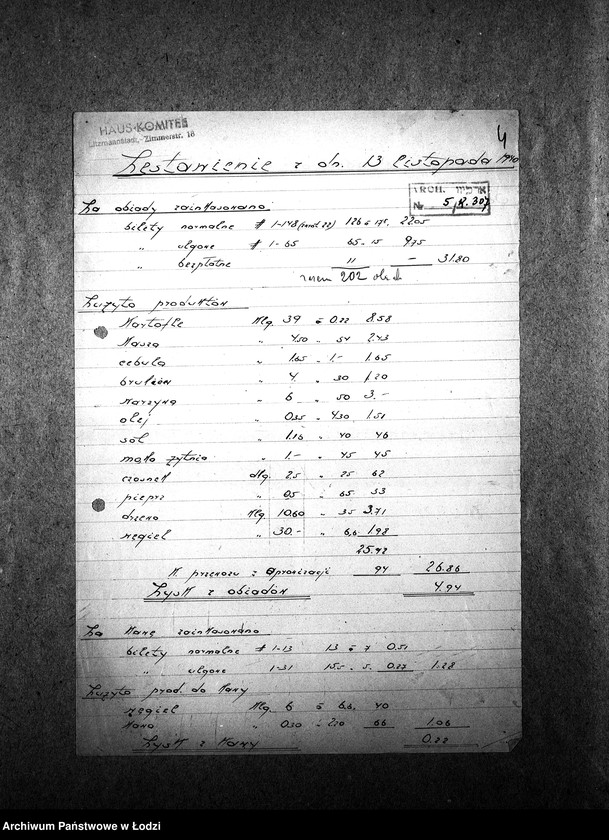 4
HAUS-KOMITEE
Litzmannstadt, Zimmerstr. 18
Zestawienie z dn. 13 listopada 1940
ARCH. ארכיון
Nr. 5, 8. 307
Za obiady zainkasowano
bilety normalne # 1-148 126 à 17½ 2205
" ulgowe # 1-65 65-15 975
" bezpłatne 11 — 31.80
razem 202 obiad
Zużyto produktów
Kartofle Klg. 39 à 0.22 8.58
Kasza " 4.50 " 54 2.43
cebula " 1.65 " 1.- 1.65
brukiew " 4. " 30 1.20
Warzywa " 6 " 50 3.-
olej " 0.35 " 4.30 1.51
sól " 1.16 " 40 46
mąka żytnia " 1.- " 45 45
czosnek dkg. 2.5 " 25 62
pieprz " 05 " 65 33
drzewo Klg. 10.60 " 35 3.71
węgiel " 30.- " 6,6 1.98
25.92
K. przewozu z Aprowizacji 94 26.86
Zysk z obiadów 4.94
Za Kawę zainkasowano
bilety normalne # 1-13 13 à 7 0.51
" ulgowe 1-31 15.5 - 5. 0.77 1.28
Zużyto prod. do Kawy
węgiel Klg. 6 à 6.6, 40
Kawa " 0.30 " 2.20 66 1.06
Zysk z Kawy 0.22
Archiwum Państwowe w Łodzi